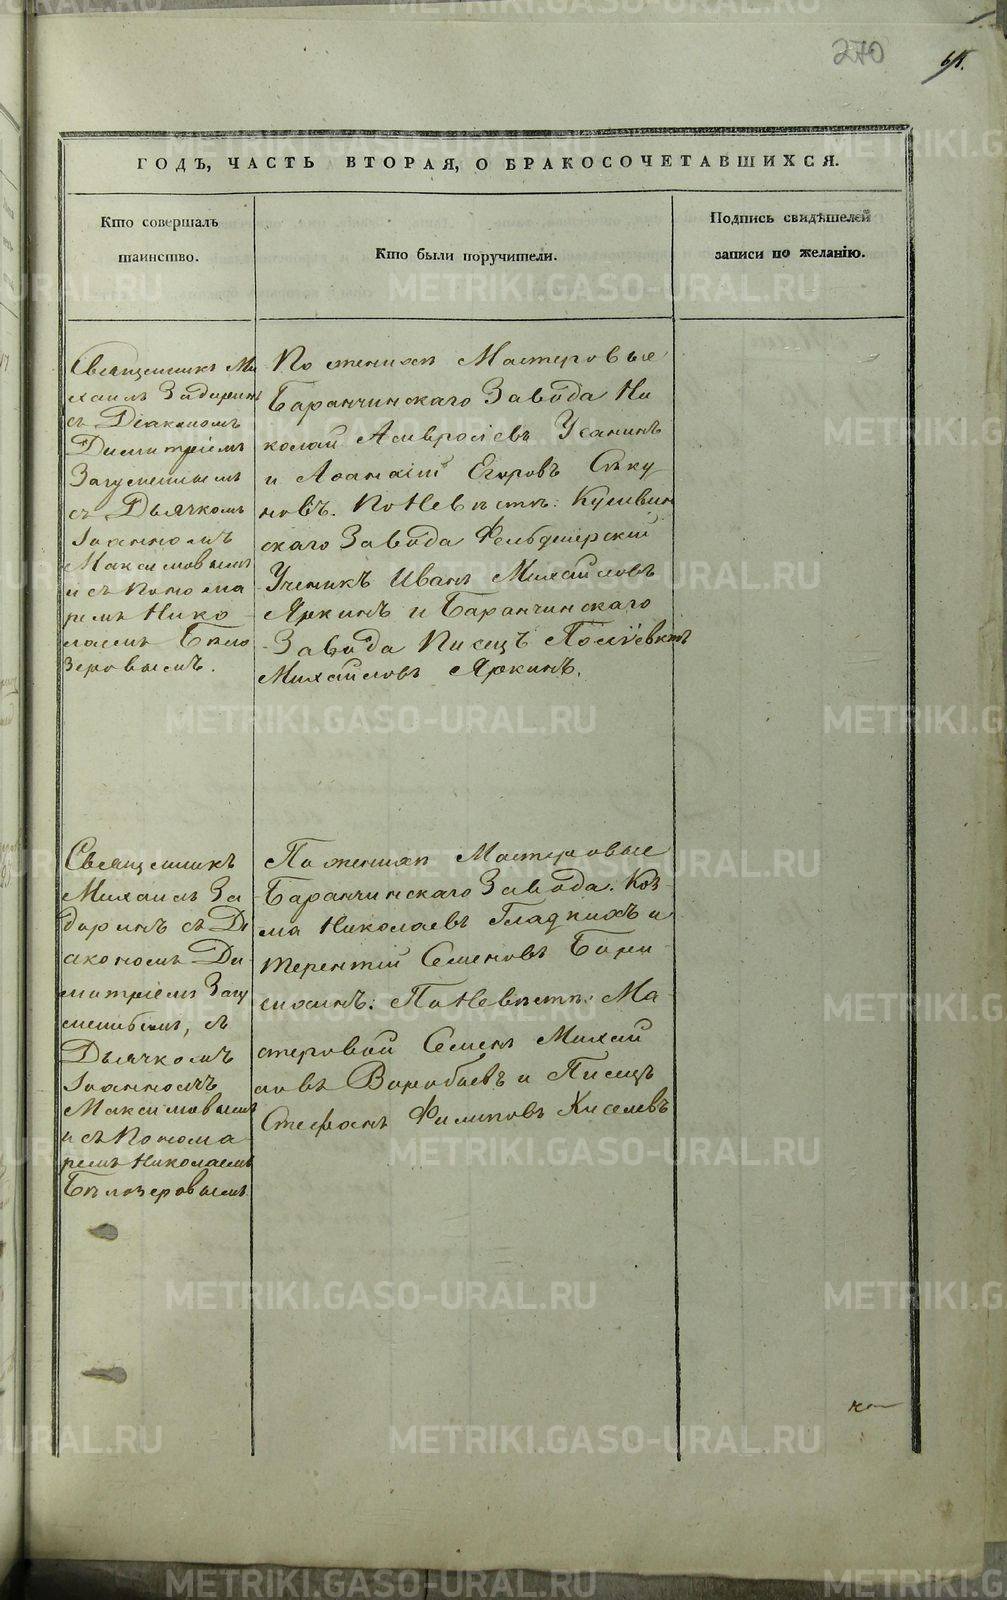 270
61.
ГОДЪ, ЧАСТЬ ВТОРАЯ, О БРАКОСОЧЕТАВШИХСЯ.
Кто совершалъ
таинство.
Кто были поручители.
Подпись свидѣтелей
записи по желанію.
Священникъ Ми
хаилъ Задоринъ
съ Діакономъ
Димитріемъ
Загуменнымъ
съ Дьячкомъ
Іоанномъ
Максимовымъ
и съ Понома
ремъ Нико
лаемъ Бѣло
зеровымъ.
По женихѣ Мастеровые
Баранчинскаго Завода Ни
колай Амвросіевъ Усанинъ
и Аѳанасій Егоровъ Сѣку
новъ. По Невѣстѣ: Кушвин
скаго Завода Фельдшерскій
Ученикъ Иванъ Михайловъ
Яркинъ и Баранчинскаго
Завода Писецъ Полиевктъ
Михайловъ Яркинъ.
Священникъ
Михаилъ За
доринъ съ Ді
акономъ Ди
митріемъ Загу
меннымъ, съ
Дьячкомъ
Іоанномъ
Максимовымъ
и съ Понома
ремъ Николаемъ
Бѣлозеровымъ
По женихѣ Мастеровые
Баранчинскаго Завода: Коз-
ма Николаевъ Гладкихъ и
Терентій Семеновъ
По Невѣстѣ: Ма-
стеровой Семенъ Михай
ловъ Воробьевъ и Писецъ
Стефанъ Филиповъ Киселевъ
METRIKI.GASO-URAL.RU